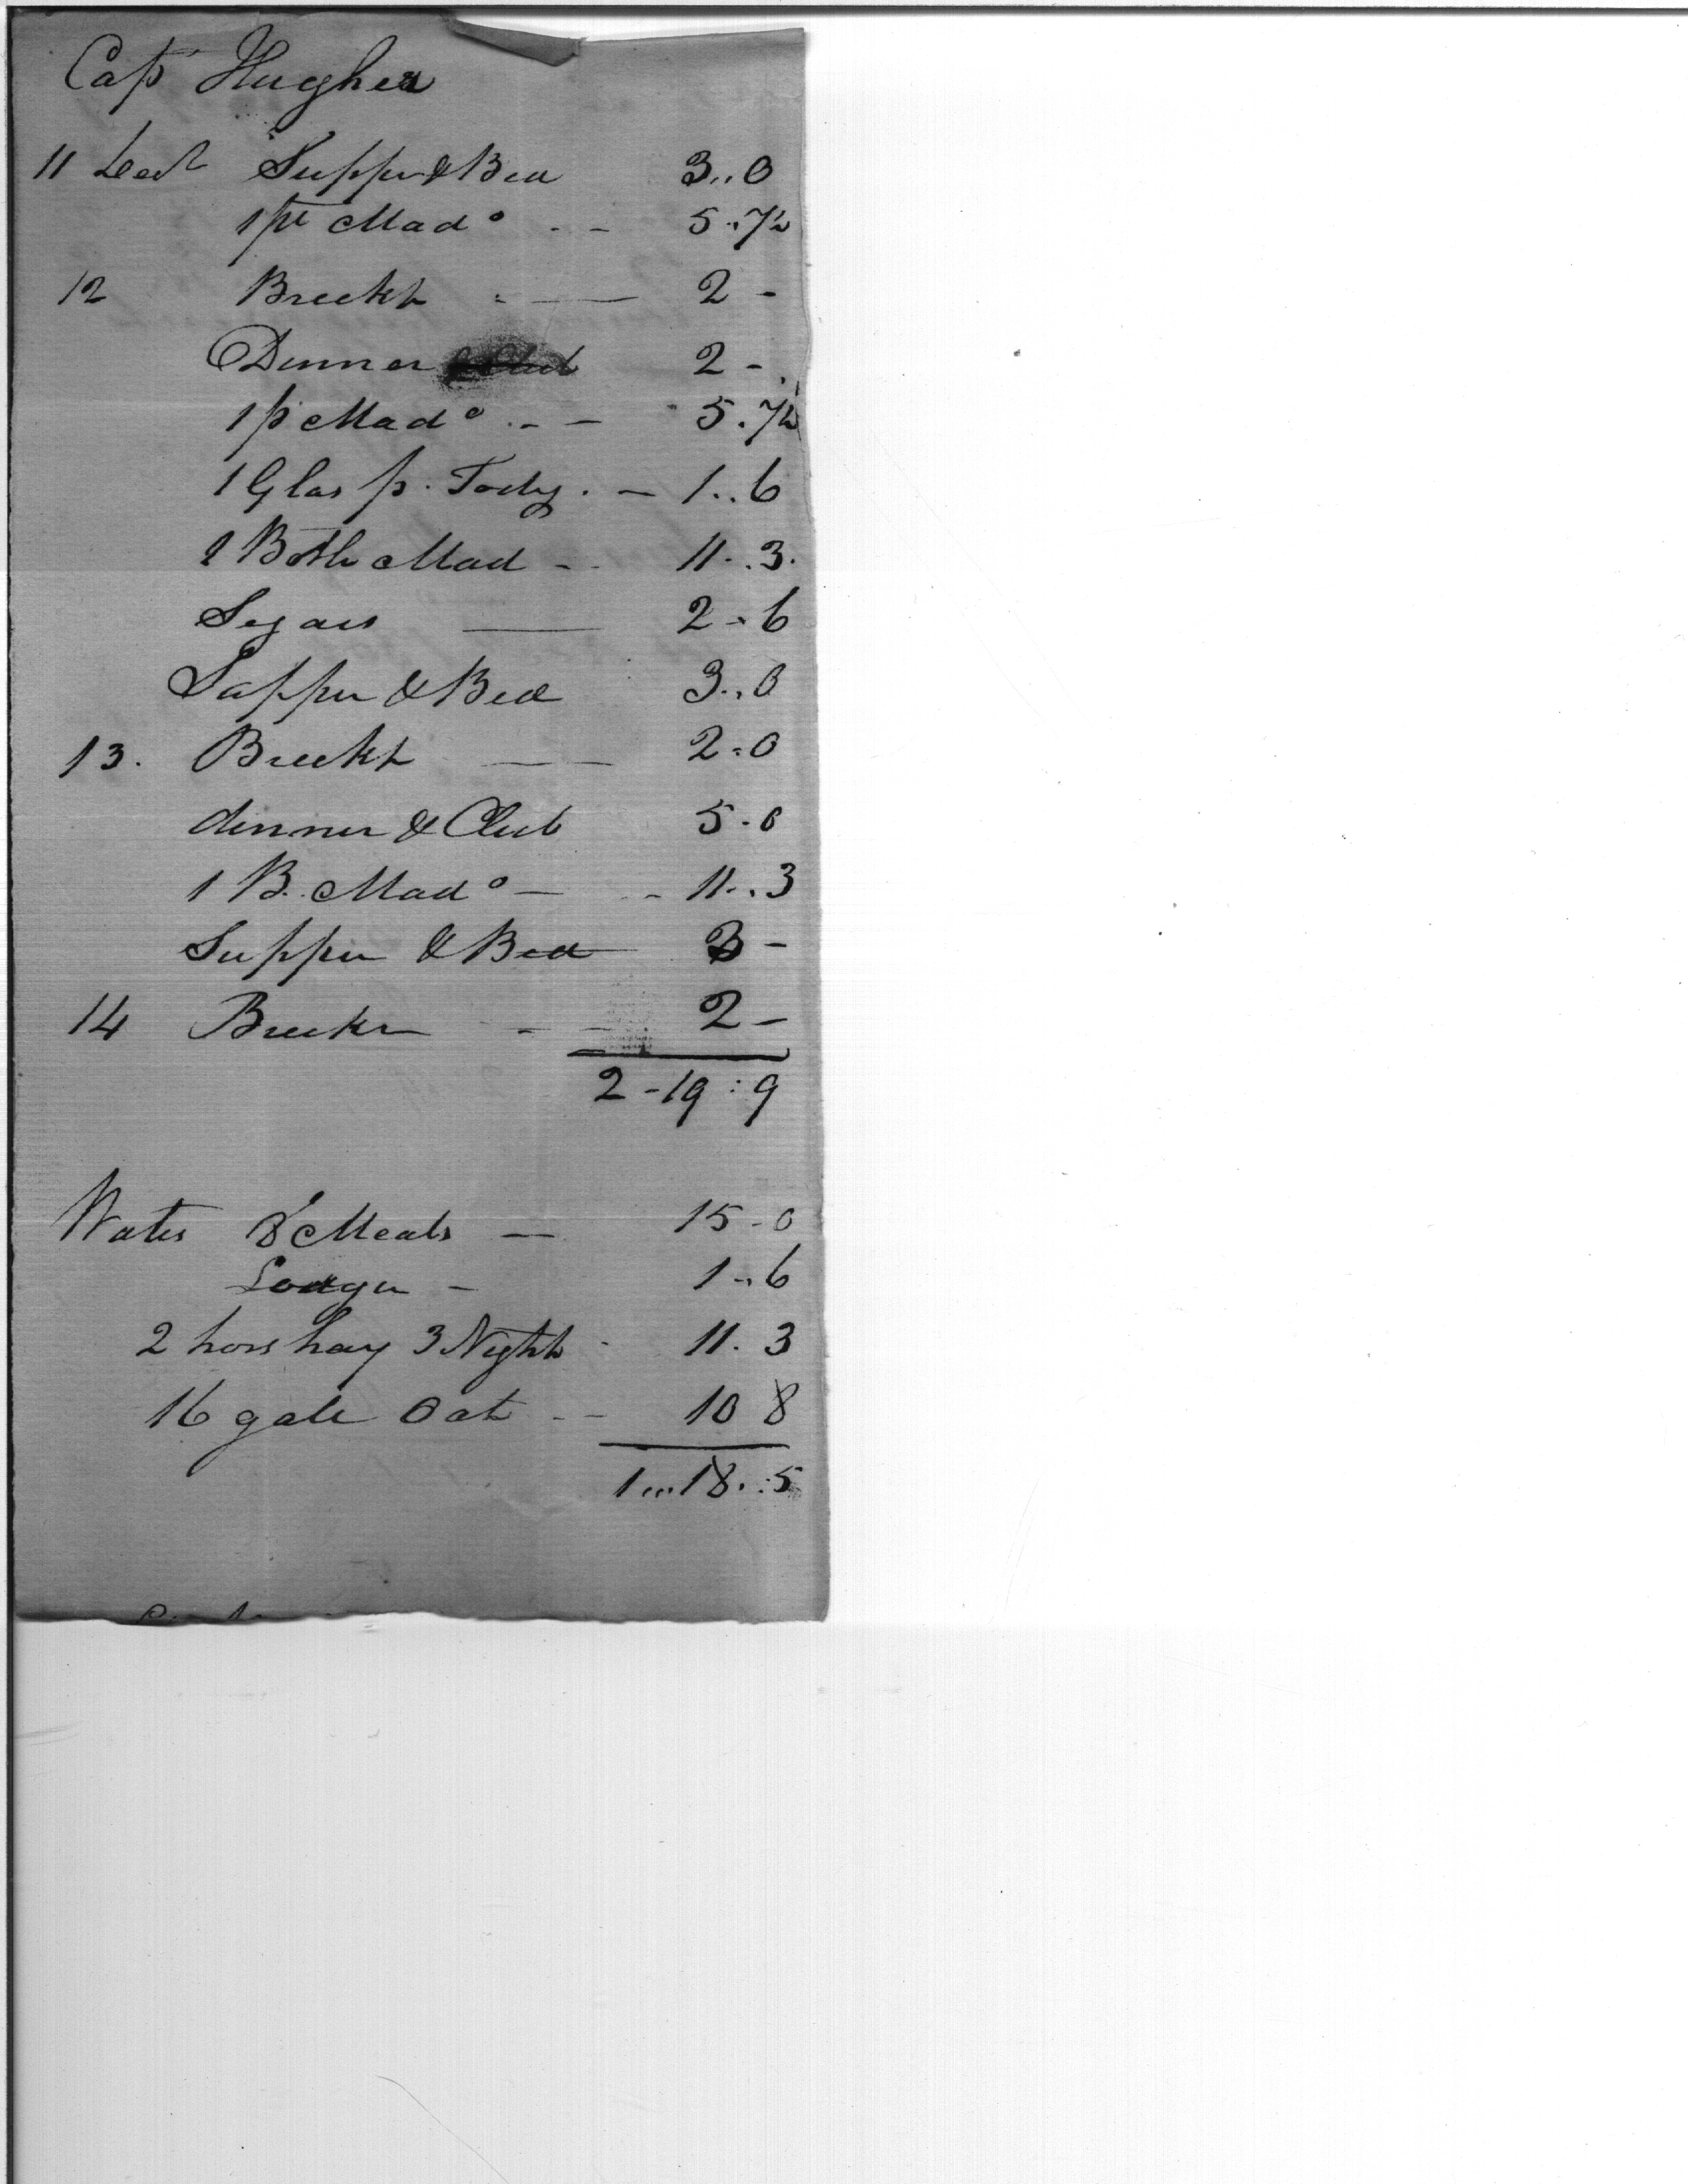 Capt Hughes
11 Decr Supper & Bed 3..0
1 pt Mado - - 5.7½
12 Breekt - 2 -
Dinner & Club 2 -
1 p Mado - - 5.7½
1 Glas p. Tody. - 1..6
1 Bottle Mad - 11..3.
Segars 2-6
Supper & Bed 3..0
13. Breekt 2-0
dinner & Club 5-0
1 B. Mado - - 11..3
Supper & Bed 3 -
14 Breekt - - 2 -
2-19:9
8 Meals - 15-0
1..6
2 hors hay 3 Nights - 11.3
16 galls Oats - - 10 8
1...18..5